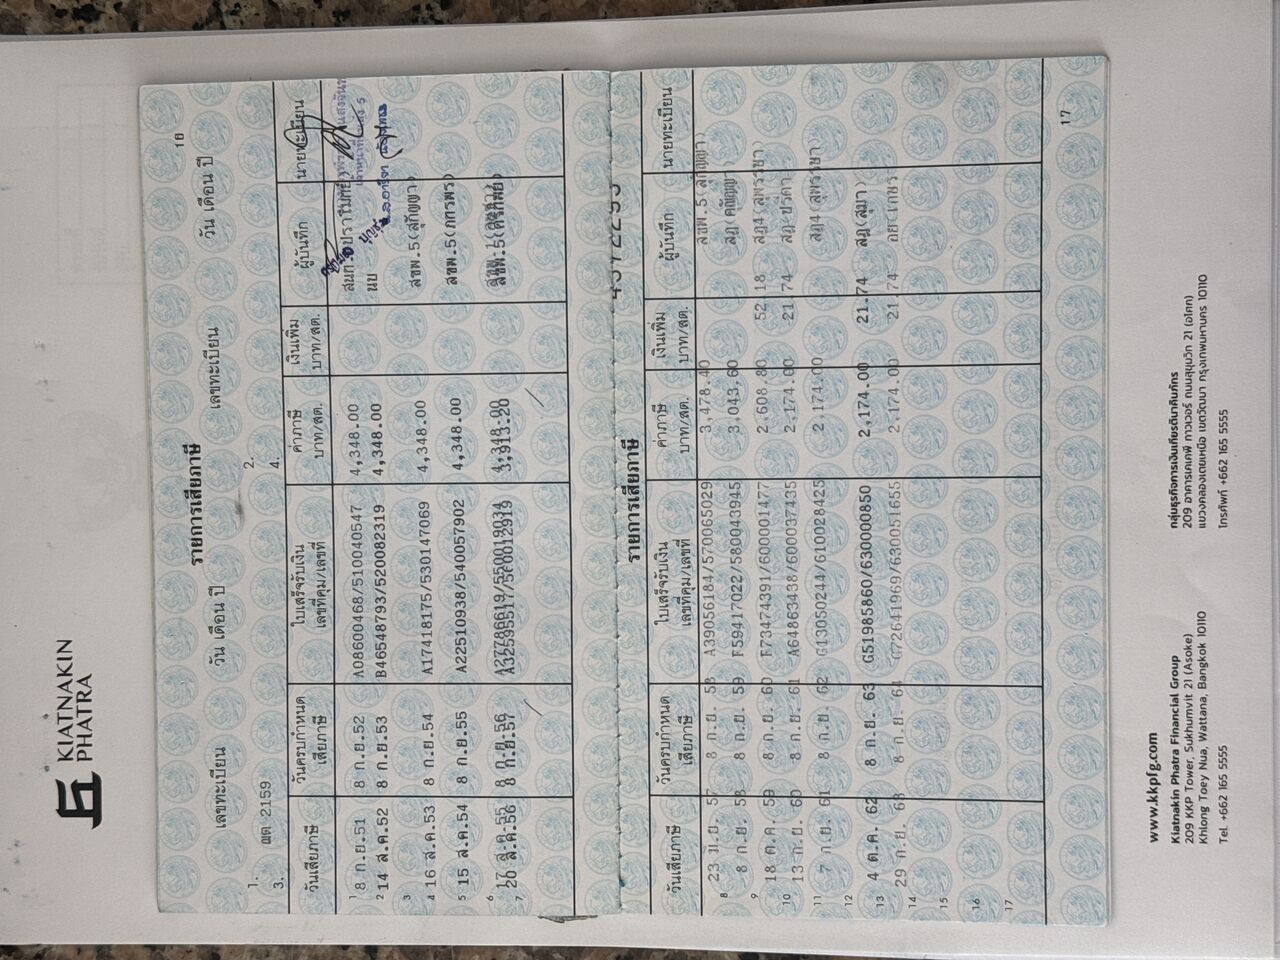 KIATNAKIN
PHATRA
16
รายการเสียภาษี
เลขทะเบียน วัน เดือน ปี เลขทะเบียน วัน เดือน ปี
1. ผต 2159 2.
3. 4.
วันเสียภาษี วันครบกำหนดเสียภาษี ใบเสร็จรับเงิน เลขที่คุม/เลขที่ ค่าภาษี บาท/สต. เงินเพิ่ม บาท/สต. ผู้บันทึก นายทะเบียน
1 8 ก.ย.51 8 ก.ย.52 A08600468/510040547 4,348.00
2 14 ส.ค.52 8 ก.ย.53 B46548793/520082319 4,348.00 นบ
3
4 16 ส.ค.53 8 ก.ย.54 A17418175/530147069 4,348.00 สขพ.5(สุกัญญา)
5 15 ส.ค.54 8 ก.ย.55 A22510938/540057902 4,348.00 สขพ.5(ภทรพร)
6 17 ส.ค.55 8 ก.ย.56 A27786619/550019034 4,348.00
7 20 ส.ค.56 8 ก.ย.57 A32595517/560012919 3,913.20
รายการเสียภาษี
วันเสียภาษี วันครบกำหนดเสียภาษี ใบเสร็จรับเงิน เลขที่คุม/เลขที่ ค่าภาษี บาท/สต. เงินเพิ่ม บาท/สต. ผู้บันทึก นายทะเบียน
8 23 มิ.ย. 57 8 ก.ย. 58 A39056184/570065029 3,478.40 สขพ.5(สุกัญญา)
8 ก.ย. 58 8 ก.ย. 59 F59417022/580043945 3,043.60
9 18 ต.ค. 59 8 ก.ย. 60 F73474391/600001477 2,608.80 52.18 สฎ4(สุพรรษา)
10 13 ก.ย. 60 8 ก.ย. 61 A64863438/600037435 2,174.00 21.74 สฎ ปรีดา
11 7 ก.ย. 61 8 ก.ย. 62 G13050244/610028425 2,174.00 สฎ4 สุพรรษา)
12
13 4 ต.ค. 62 8 ก.ย. 63 G51985860/630000850 2,174.00 21.74 สฎ(สุมา)
29 ก.ย. 63 8 ก.ย. 64 G72641969/630051655 2,174.00 21.74
14
15
16
17
17
www.kkpfg.com
Kiatnakin Phatra Financial Group
209 KKP Tower, Sukhumvit 21 (Asoke)
Khlong Toey Nua, Wattana, Bangkok 10110
Tel. +662 165 5555
กลุ่มธุรกิจการเงินเกียรตินาคินภัทร
209 อาคารเคเคพี ทาวเวอร์ ถนนสุขุมวิท 21 (อโศก)
แขวงคลองเตยเหนือ เขตวัฒนา กรุงเทพมหานคร 10110
โทรศัพท์ +662 165 5555